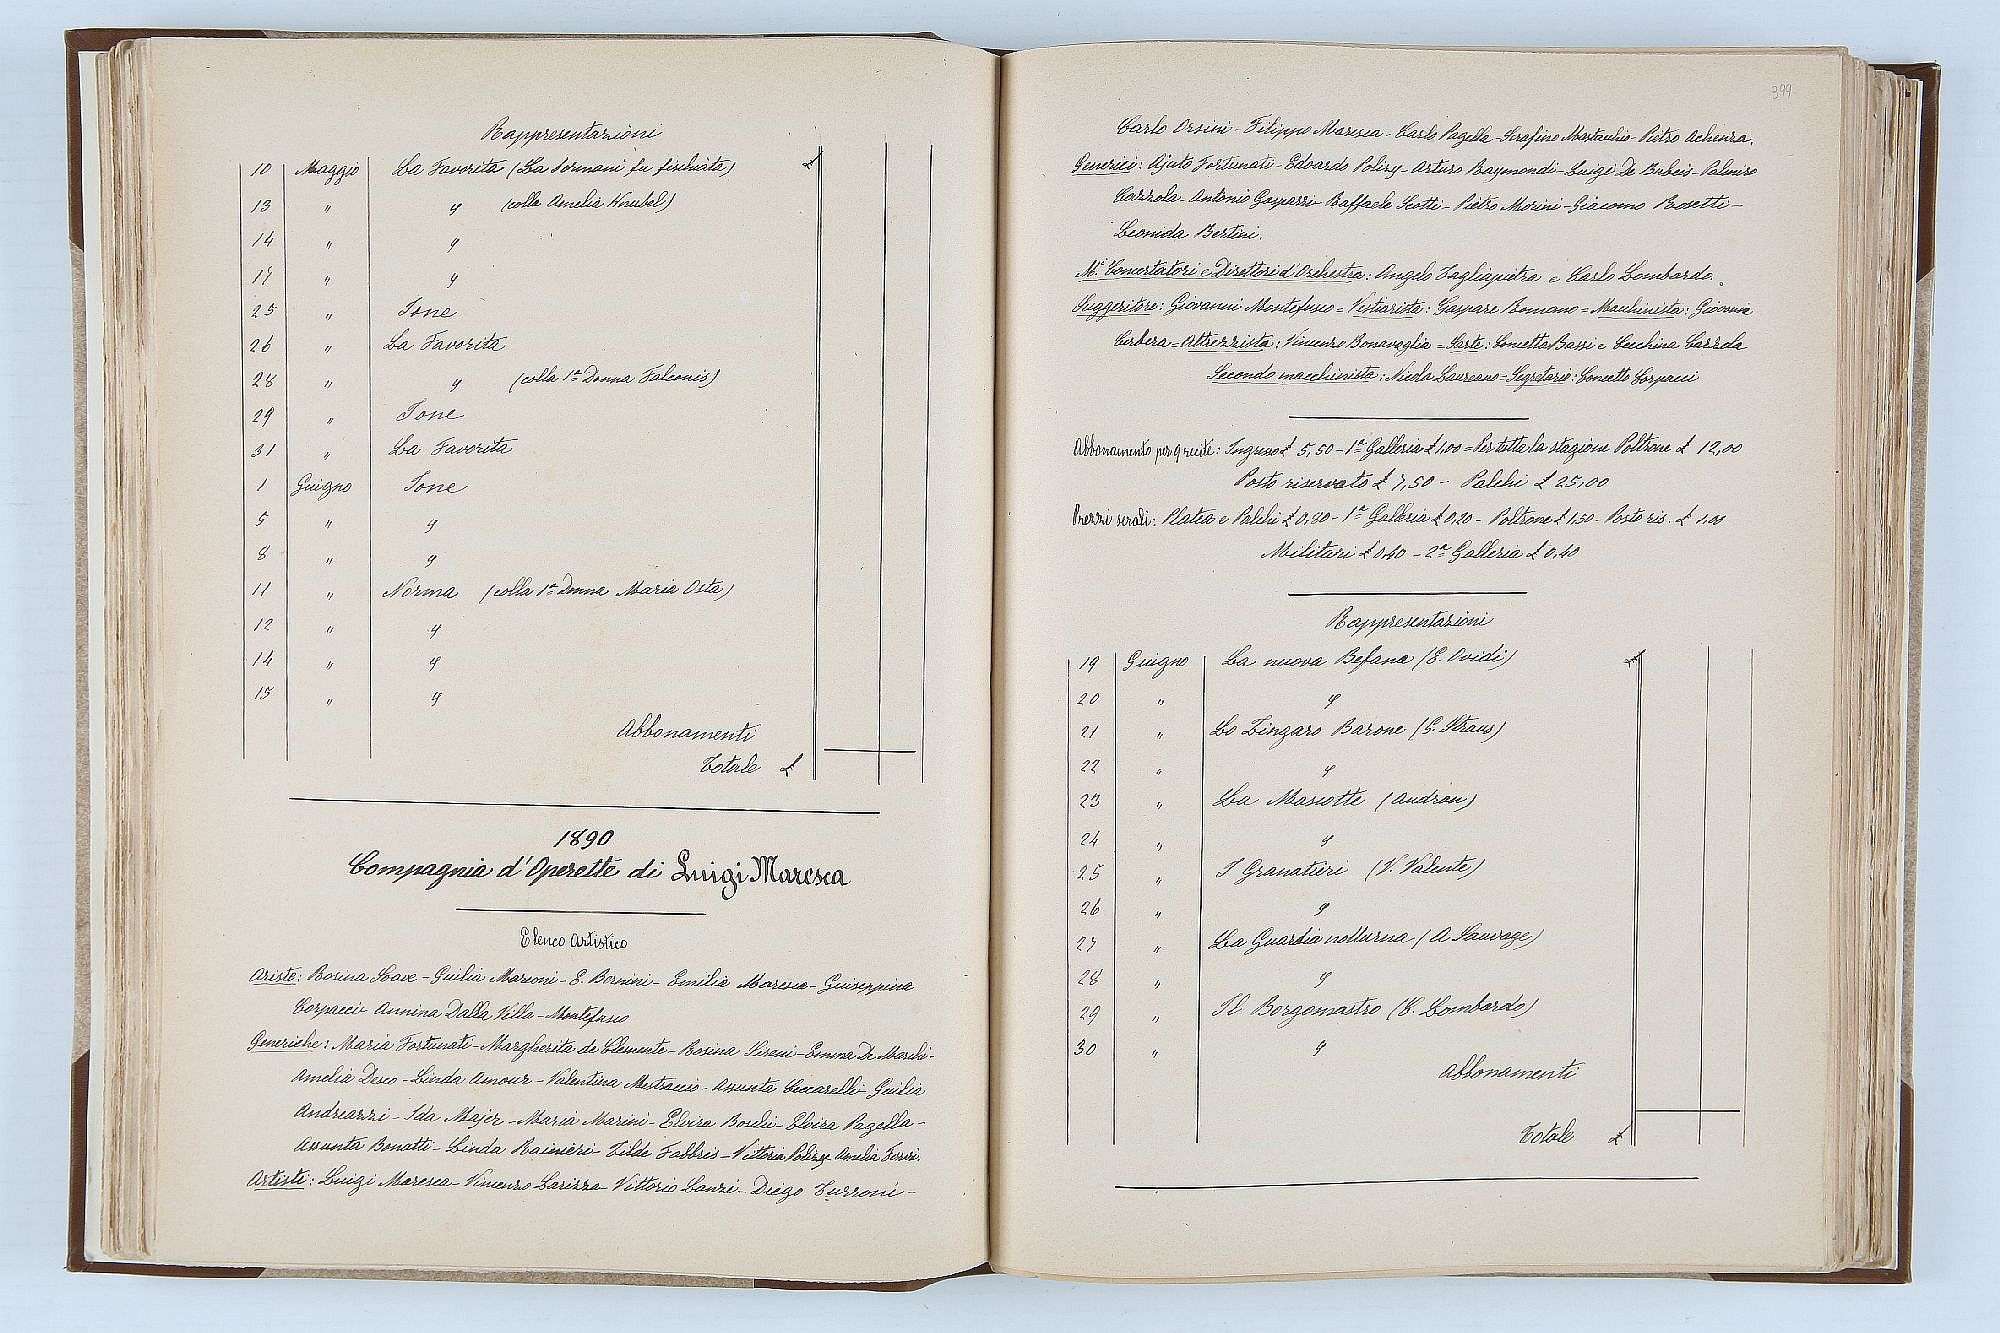 Rappresentazioni
10 Maggio La Favorita (La Sormani fu fischiata) £
13 " " (colla Amelia Knubel)
14 " "
17 " "
25 " Ione
26 " La Favorita
28 " " (colla 1ª Donna Falconis)
29 " Ione
31 " La Favorita
1 Guigno Ione
5 " "
8 " "
11 " Norma (colla 1ª Donna Maria Osta)
12 " "
14 " "
15 " "
Abbonamenti
Totale £
1890
Compagnia d'Operette di Luigi Maresca
Elenco Artistico
Ariste: Rosina - Guilia Marconi - E. Bornini - Emilia Maresca - Guiseppina
Corpacci - Annina Dalla Villa - Montefusco
Generiche: Maria Fortunati - Margherita de Clemente - Rosina Visani - Emma De Marchi -
Amelia Desco - Linda Amour - Valentina - Assunta Ceccarelli - Guilia
Andreazzi - Ida Majer - Maria Marini - Elvira - Elvira Pagella -
Assunta Bonatti - Linda Rainieri - Tilde Fabbris - Vittoria Poliny - Amelia
Artisti: Luigi Maresca - Vincenzo Larizza - Vittorio Lanzi - Diego Turroni -
399
Carlo Orsini - Filippo Maresca - Carlo Pagella - Serafino - Pietro Achenza.
Generici: Ajuto Fortunati - Edoardo Poliny - Arturo Raymondi - Luigi De Rubeis - Palmiro
Cazzola - Antonio Gasparri - Raffaele Scotti - Pietro Morini - Giacomo Rosetti -
Leonida Bertini.
Mi Concertatori e Direttori d'Orchestra: Angelo Tagliapietra e Carlo Lombardo.
Suggeritore: Giovanni Montefusco = Vestiarista: Gaspare Romano = Macchinista: Giovanni
Cerbera = Attrezzista: Vincenzo Bonavoglia = Sarte: Concetta Bassi e Cecchina Cazzola
Secondo macchinista: Nicola Laureano - Segretario: Concetto Corpacci
Abbonamento per 9 recite: Ingresso £ 5,50 - 1ª Galleria £ 1,00 = Per tutta la stagione Poltrone £ 12,00
Posto riservato £ 7,50 - Palchi £ 25,00
Prezzi serali: Platea e Palchi £ 0,90 - 1ª Galleria £ 0,20 - Poltrone £ 1,50 - Posto ris. £ 1,00
Militari £ 0,40 - 2ª Galleria £ 0,40
Rappresentazioni
19 Guigno La nuova Befana (E. Ovidi) £
20 " "
21 " Lo Zingaro Barone (G. Straus)
22 " "
23 " La Mascotte (Audran)
24 " "
25 " I Granatieri (V. Valente)
26 " "
27 " La Guardia notturna (A Sauvage)
28 " "
29 " Il Borgomastro (C. Lombardo)
30 " "
Abbonamenti
Totale £